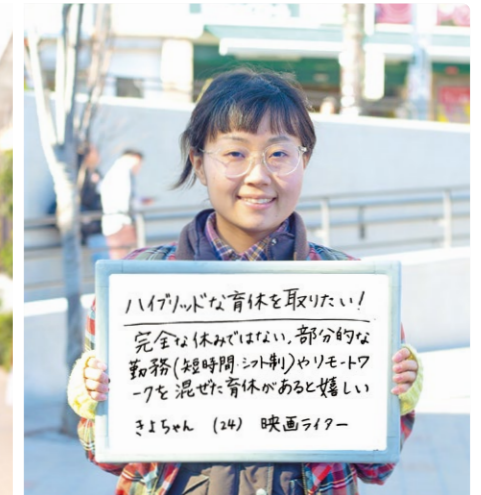 ハイブリッドな育休を取りたい!
完全な休みではない、部分的な
勤務(短時間・シフト制)やリモートワ
ークを混ぜた育休があると嬉しい
きよちゃん (24) 映画ライター